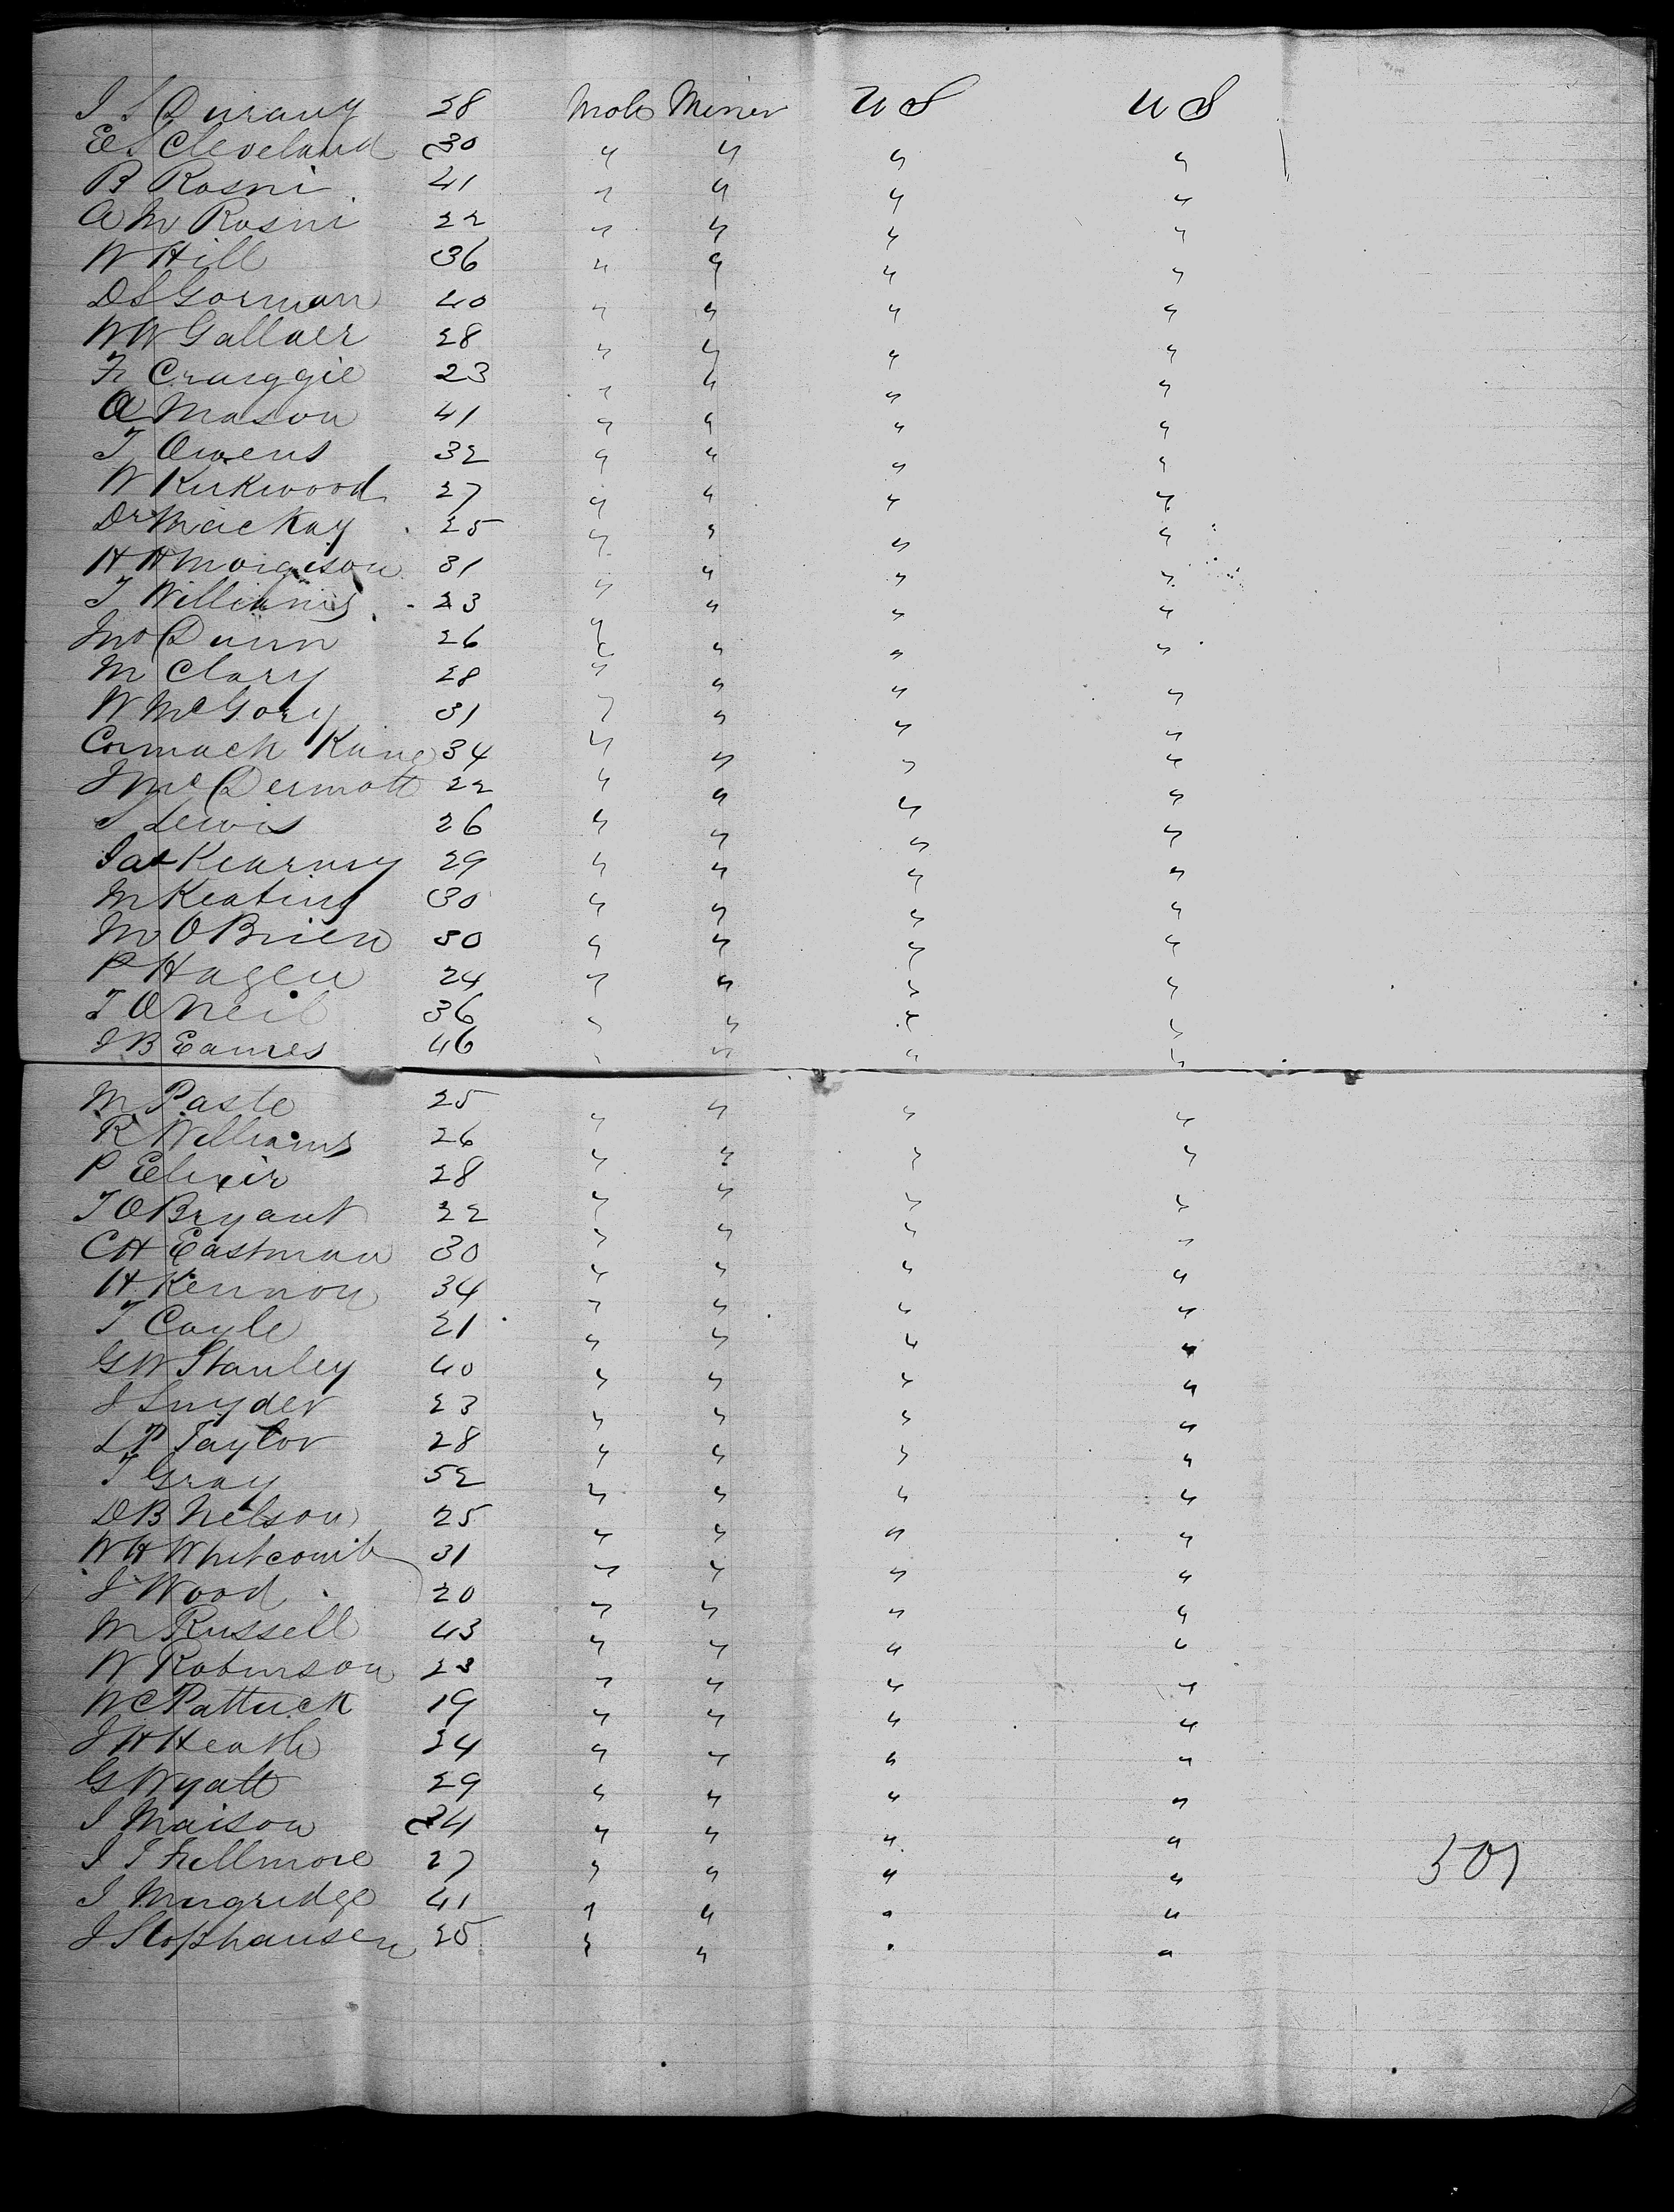 J S Durany 28 Male Miner U S U S
E S Cleveland 30 " " " "
B Rosni 41 " " " "
A M Rosni 22 " " " "
W Hill 36 " " " "
D S Gorman 40 " " " "
W W Gallaer 28 " " " "
F Craiggie 23 " " " "
A Mason 41 " " " "
T Owens 32 " " " "
W Kirkwood 27 " " " "
Dr MacKay 25 " " " "
H H Morgison 31 " " " "
T Williams 23 " " " "
Jno Dunn 26 " " " "
M Clary 28 " " " "
W McGory 31 " " " "
Cormack Kane 34 " " " "
J McDermott 22 " " " "
S Lewis 26 " " " "
Jas Kearney 29 " " " "
M Keating 30 " " " "
M O Brien 30 " " " "
P Hagen 24 " " " "
T O Neil 36 " " " "
J B Eames 46 " " " "
M Paste 25 " " " "
R Williams 26 " " " "
P Elixir 28 " " " "
T O Bryant 22 " " " "
C H Eastman 30 " " " "
H Kennon 34 " " " "
T Coyle 21 " " " "
G W Stanley 40 " " " "
J Snyder 23 " " " "
L P Taylor 28 " " " "
T Gray 52 " " " "
D B Nelson 25 " " " "
W H Whitcomb 31 " " " "
J Wood 20 " " " "
M Russell 43 " " " "
W Robinson 23 " " " "
W C Pattuck 19 " " " "
J H Heath 34 " " " "
G Wyatt 29 " " " "
J Maison 34 " " " "
J T Fillmore 27 " " " "
J Mugridge 41 " " " "
J Slophausen 25 " " " "
307